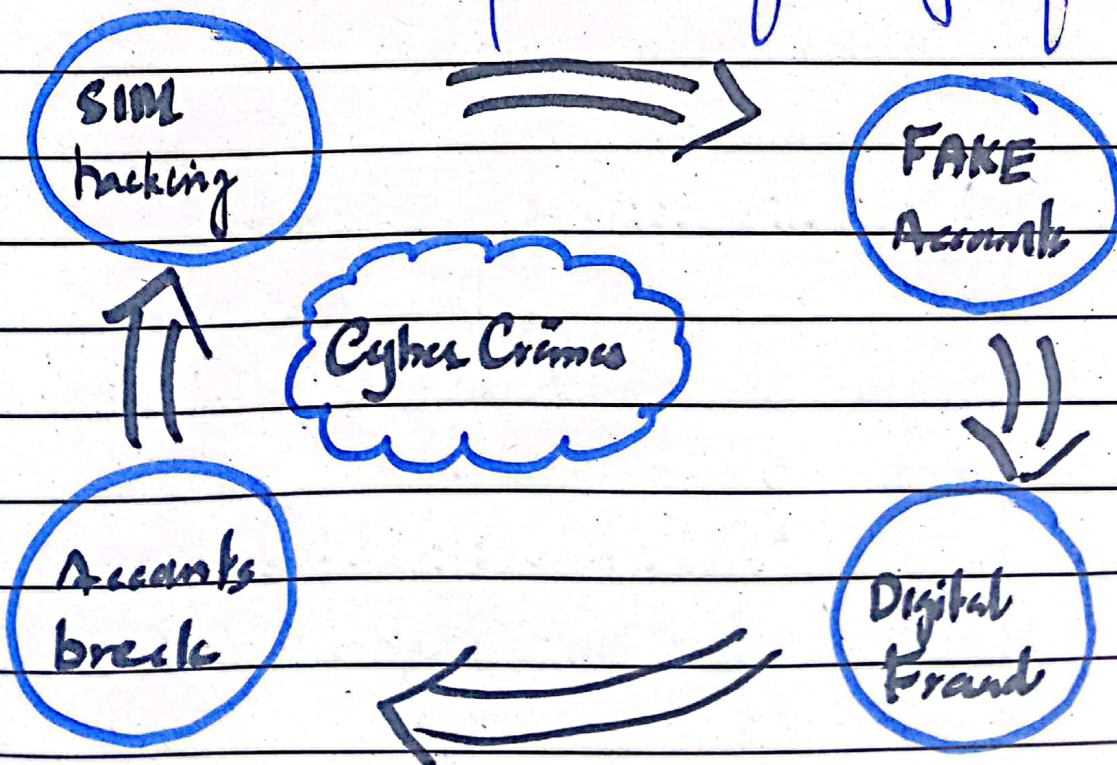 SIM
hacking
FAKE
Accounts
Cyber Crimes
Accounts
break
Digital
Fraud